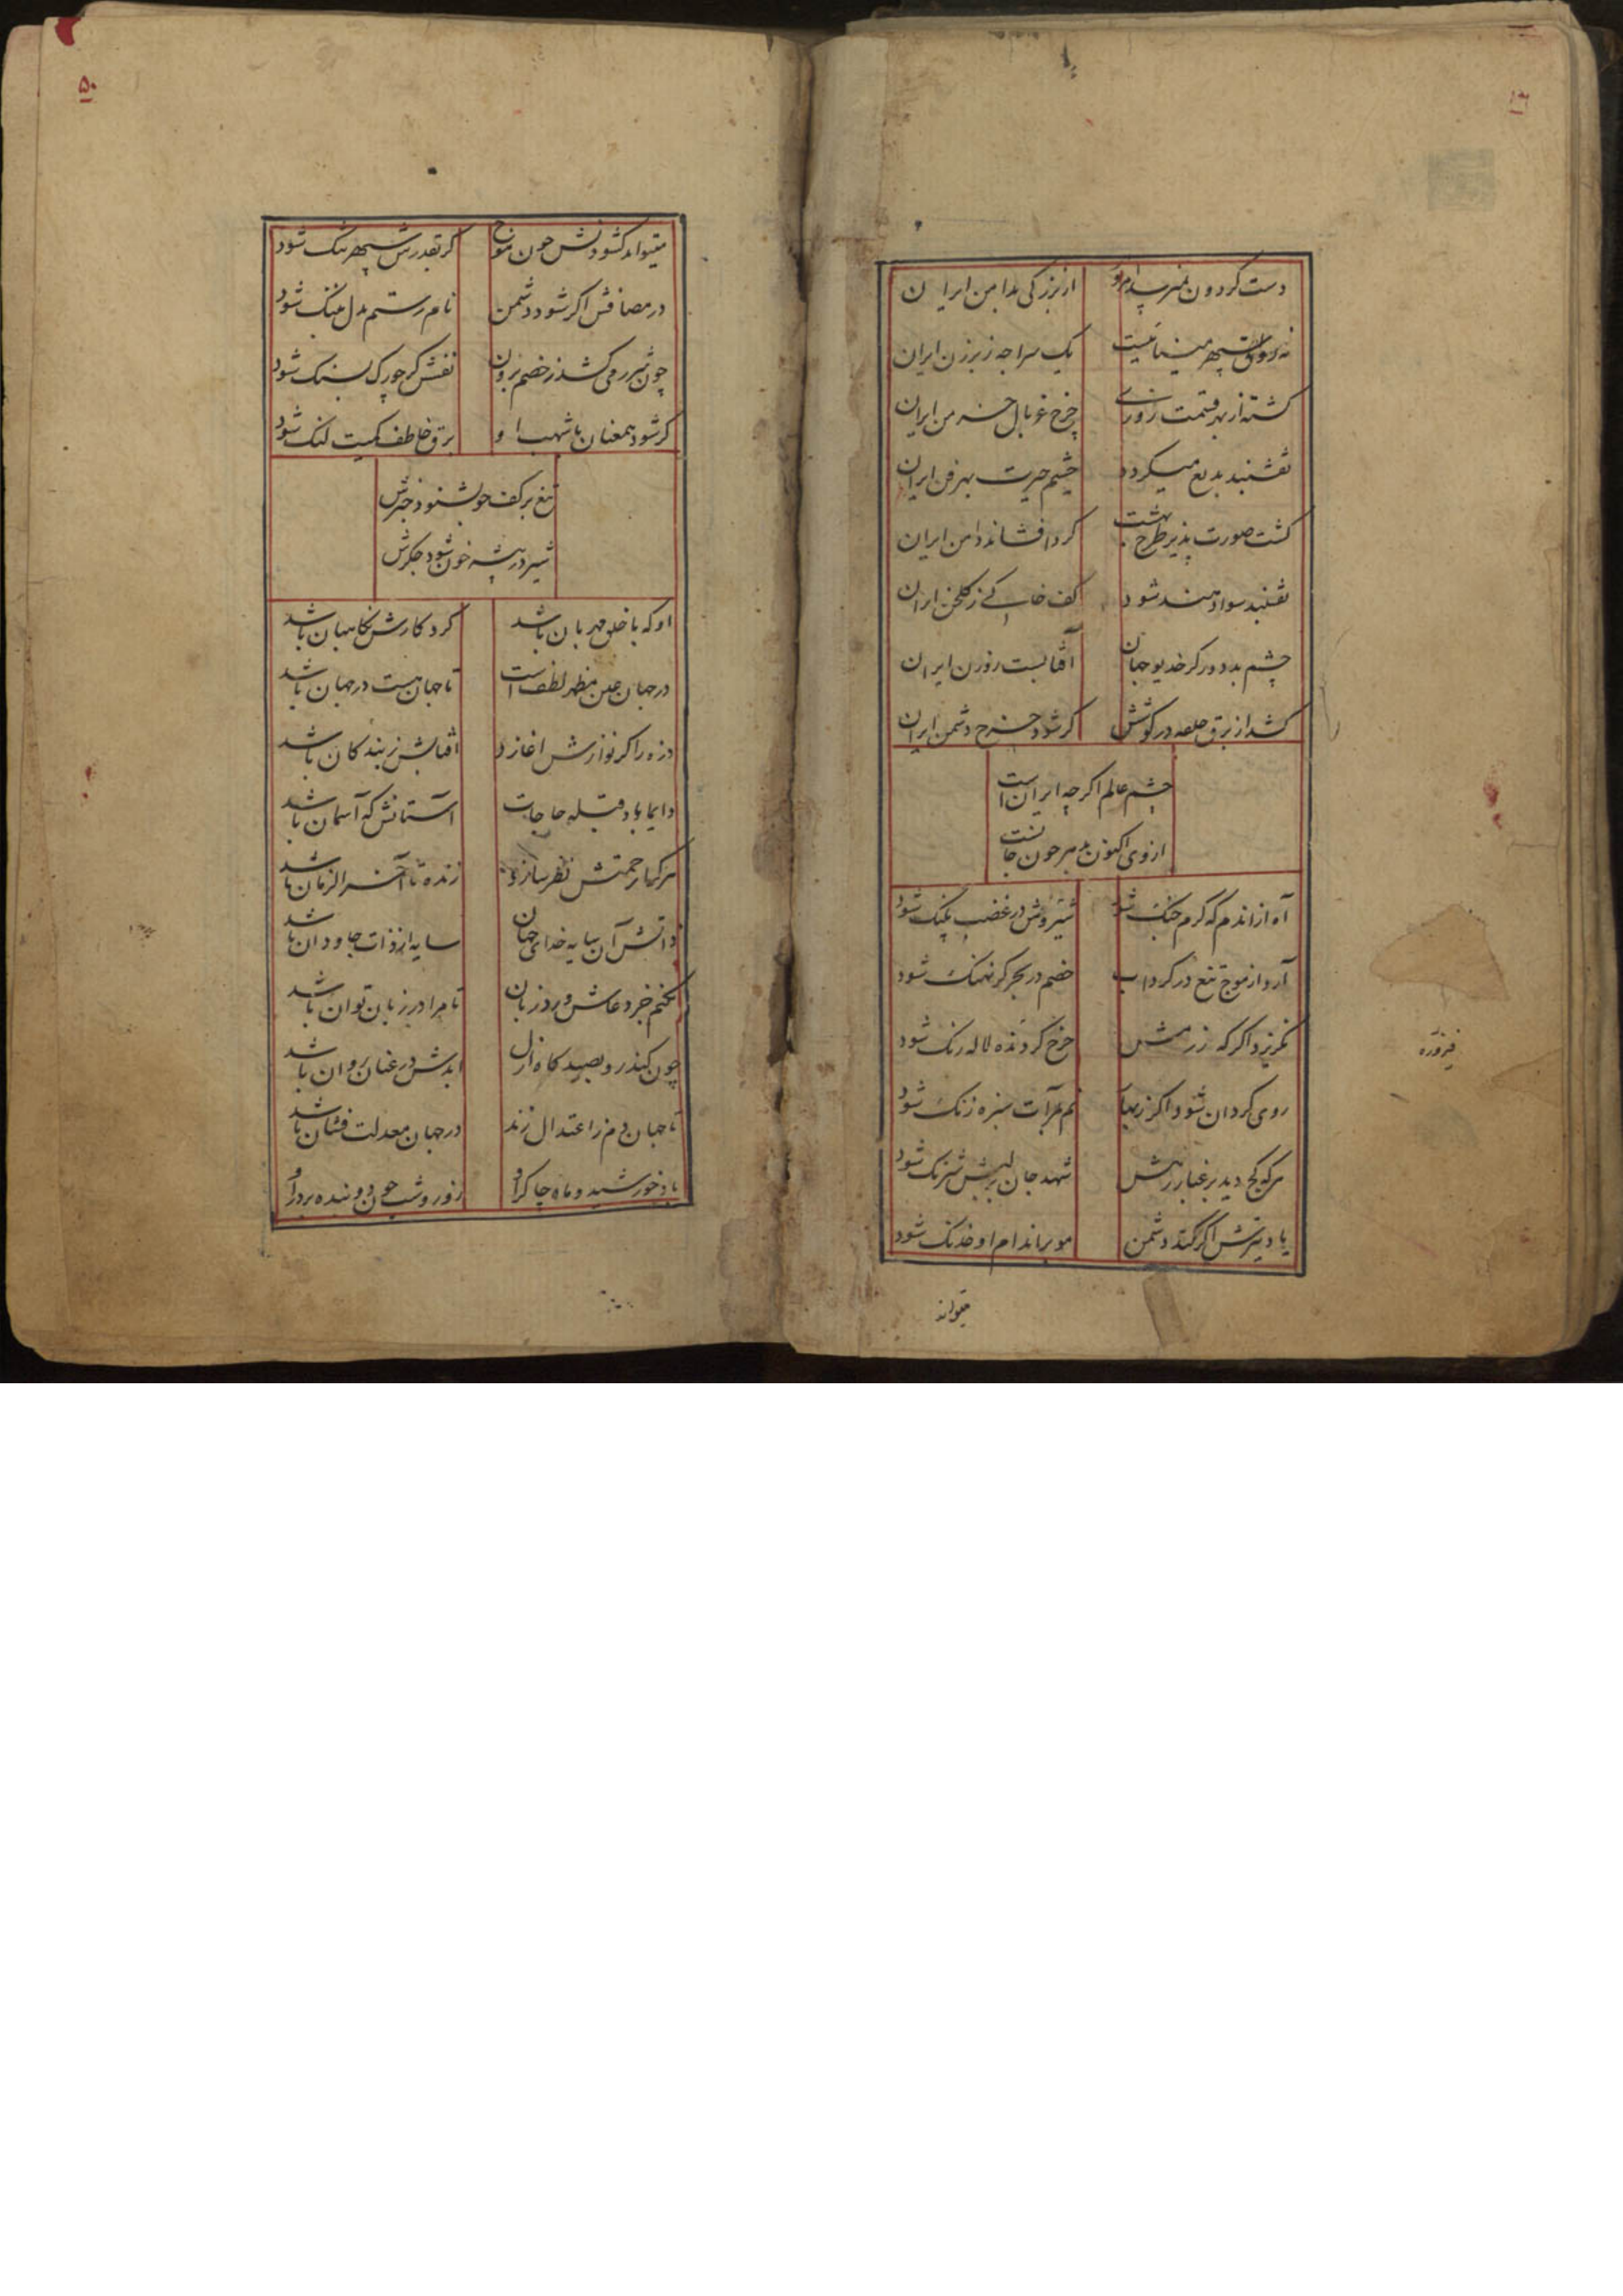 دست گردون نمیرسد امروز
از بزرگی بدامن ایران
نه رواق سپهر مینا نیست
یک سراچه ز برزن ایران
گشته از بهر قسمت روزی
چرخ غربال خرمن ایران
نقشبند بدیع میگردد
چشم حیرت بهر فن ایران
گشت صورت پذیر طرح بهشت
گرد افشاند دامن ایران
نقشبند سواد هند شود
کف خاکی ز گلخن ایران
چشم بد دور کز خدیو جهان
آفتابست روزن ایران
کشد از برق حلقه در گوشش
گر شود چرخ دشمن ایران
چشم عالم اگرچه ایران است
از وی اکنون بهر چون جانست
آه از اندم که گرم جنگ شود
شیروش در غضب پلنگ شود
آرد از موج تیغ در گرداب
خصم در بحر گر نهنگ شود
نگریزد اگر که زرمش
چرخ گردنده لاله رنگ شود
روی گردان شود اگر ز
نم مرآت سبزه زنگ شود
هر که کج دید بر غبار رهش
شهد جان بر لبش شرنگ شود
یاد تیرش اگر کند دشمن
مو بر اندام او خدنگ شود
میتواند
فیروزه
۵۰
میتواند گشودنش چون موج
گر بقدرش سپهر تنگ شود
در مصافش اگر شود دشمن
نام رستم بدل بننگ شود
چون شرر می کشد ز خصم برون
نفسش گر چو رگ بسنگ شود
گر شود همعنان با شهب او
برق خاطف کمیت لنگ شود
تیغ بر کف چو بشنود خبرش
شیر در بیشه خون شود جگرش
او که با خلق مهربان باشد
کردگارش نگاهبان باشد
در جهان عین مظهر لطف است
تا جهان هست در جهان باشد
ذره را گر نوازش اغازد
افتابش ز بندگان باشد
دایما باد قبله حاجات
آستانش که آسمان باشد
هر کرا رحمتش نظر سازد
زنده تا آخر الزمان باشد
ذاتش آن سایه خدای جهان
سایه از ذات جاودان باشد
نکنم جز دعاش ورد زبان
تا مرا در زبان توان باشد
چون کند رو بصیدگاه ازل
ابدش در عنان روان باشد
تا جهان دم ز اعتدال زند
در جهان معدلت فشان باشد
باد خورشید و ماه چاکر او
روز و شب چون دو بنده بر در او